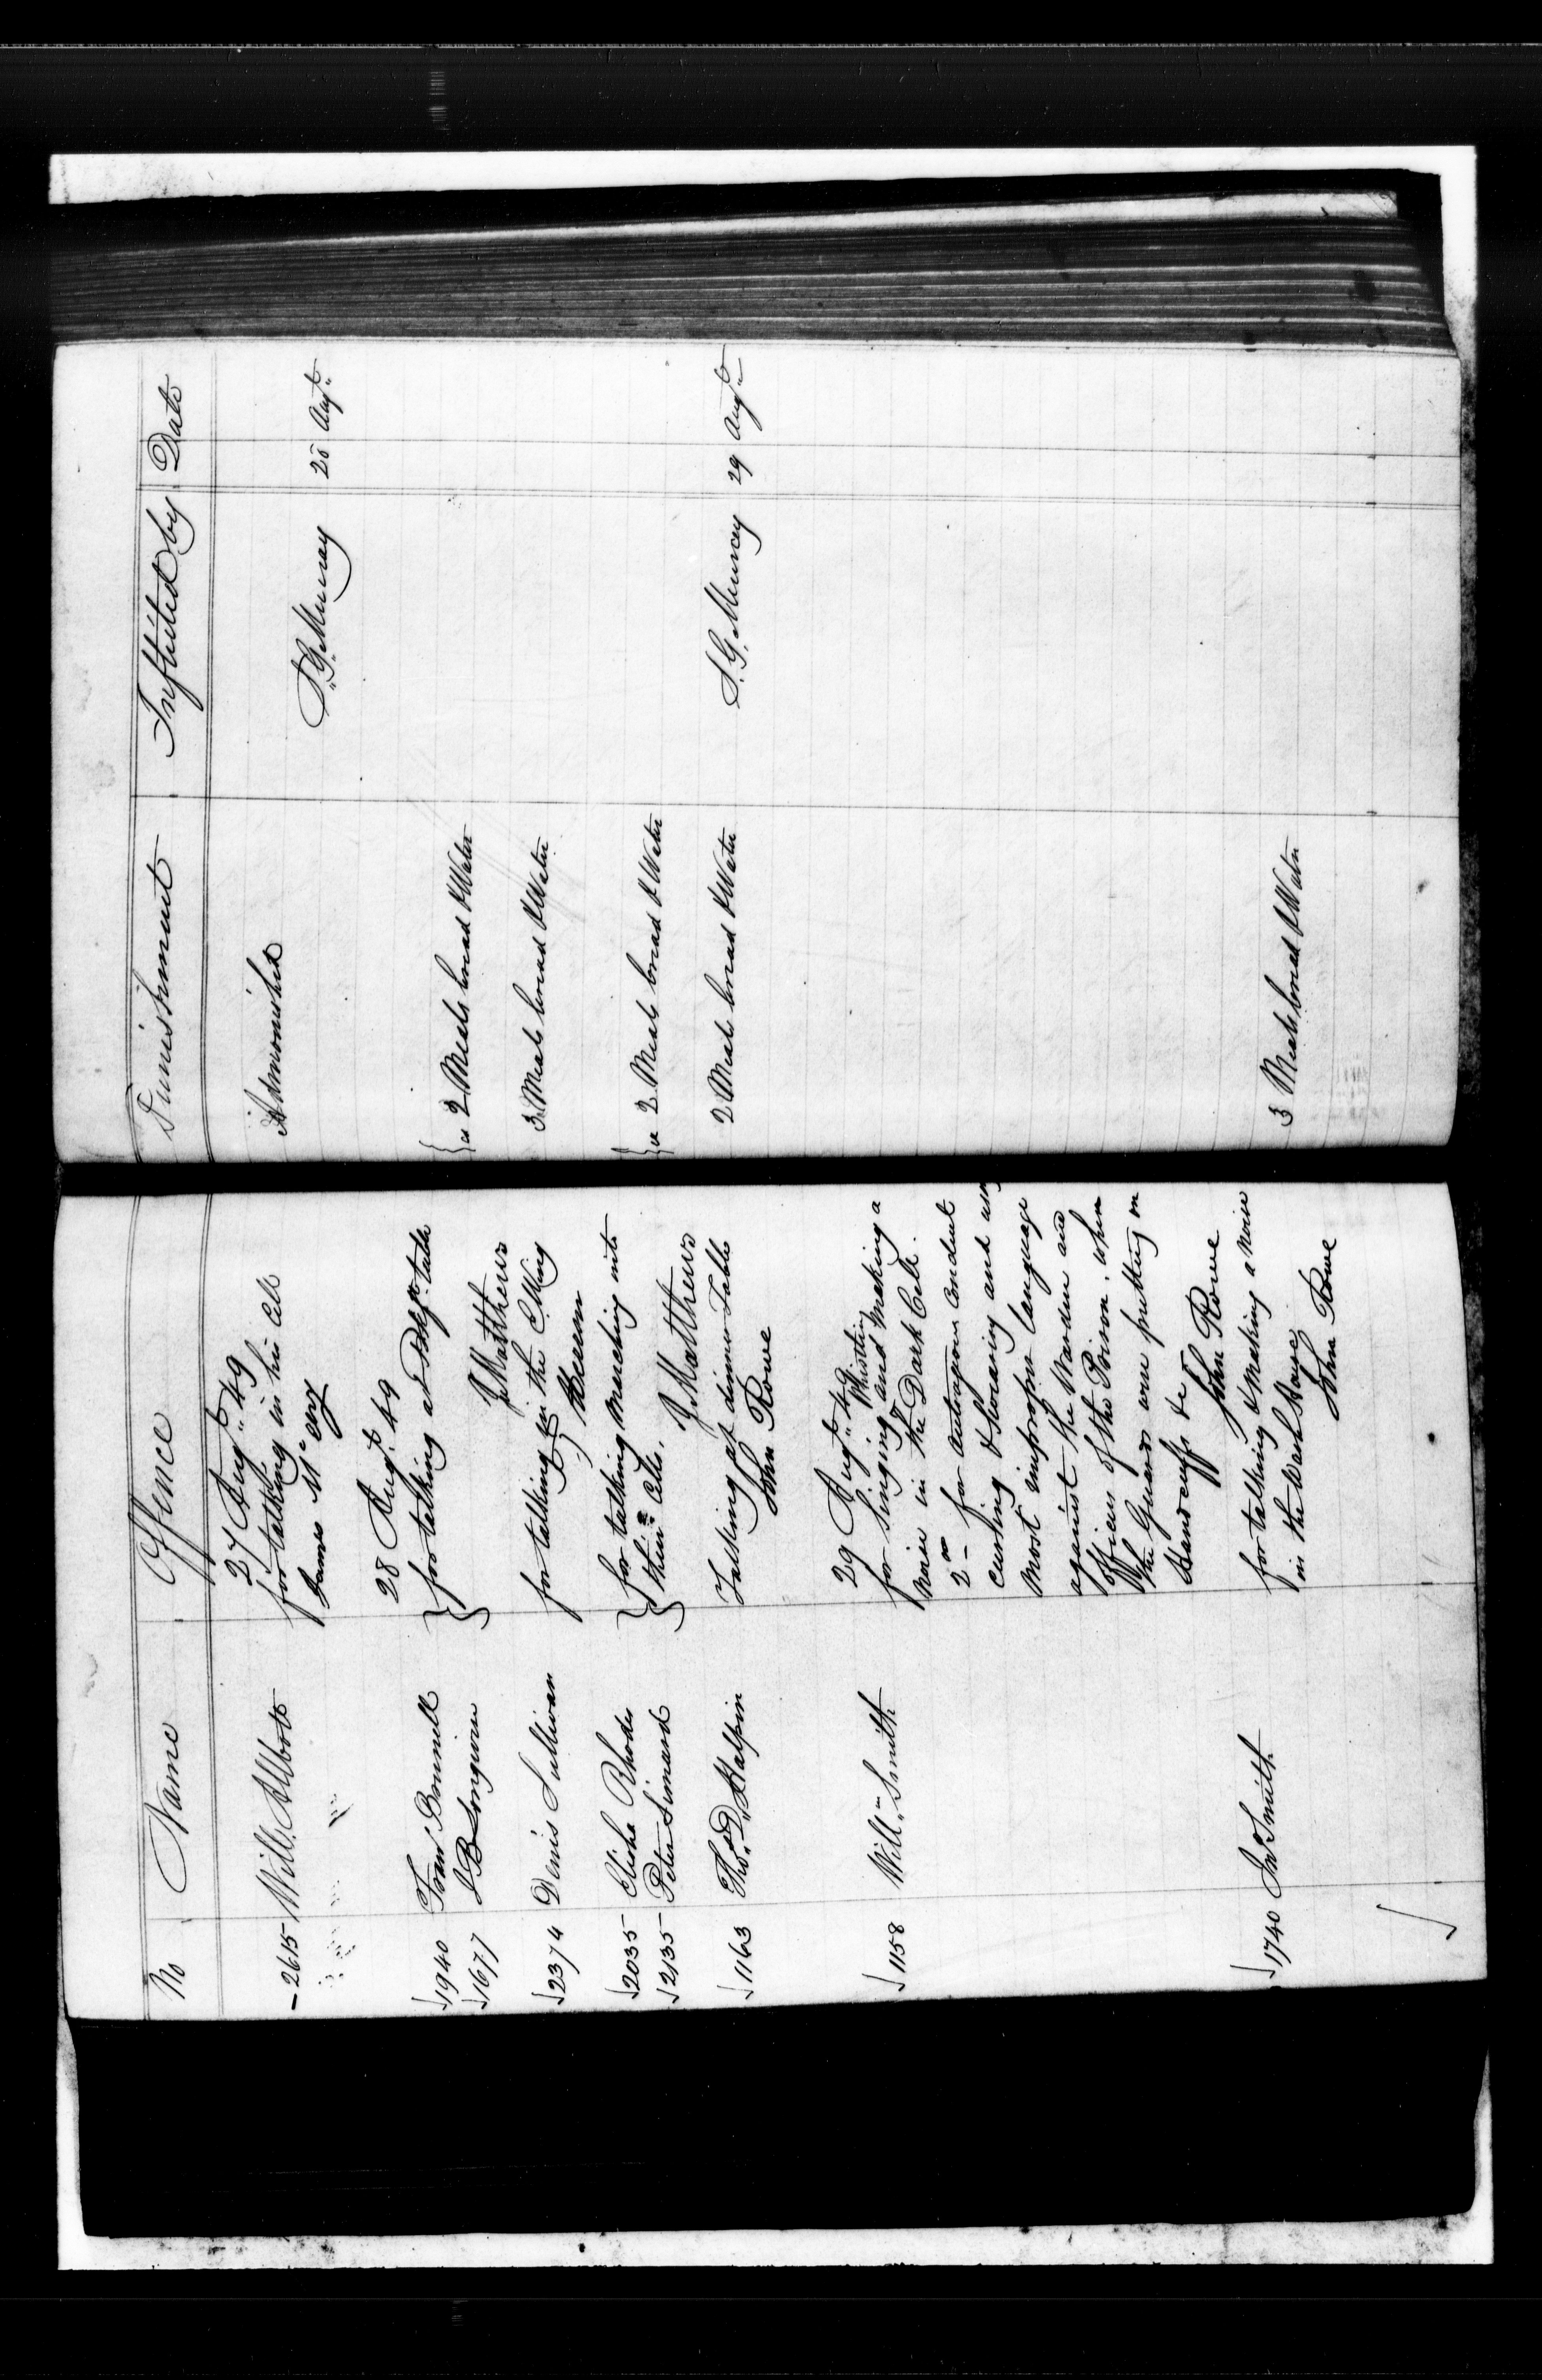 No Name Offence Punishment Inflicted by Date
27 Augt 49
2615 Will. Abbott for talking in his Cell Admonished
James Mc S. G. Murray 28 Augt
28 Augt 49
1940 Fran Bonnill for talking at Bkft table a 2 Meals bread & Water
1677 J B Longuion
J. Matthews
2374 Denis Sullivan for talking in the E. Wing 3 Meals bread & Water
2035 Elisha Rhodes for talking marching into a 2 Meals bread & Water
2135 Peter Simard their Cells.
J. Matthews
1163 Thos. D. Halpin Talking at dinner Table 2 Meals bread & Water S. G. Murray 29 Augt
John Rowe
29 Augt 49
Whistling
1158 Willm Smith for Singing and Making a
noise in the Dark Cell.
2nd for outrageous conduct
cursing & swearing and using
most improper language
against the Warden and
Officers of the Prison, when
the Guards were putting on
Handcuffs &c
John Rowe
1740 Jno Smith for talking & Making a noise 3 Meals bread & Water
in the Wash House
John Rowe